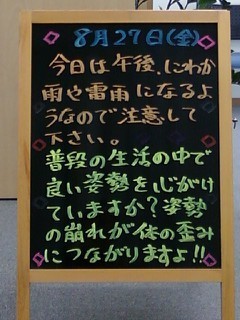 8月27日(金)
今日は午後、にわか
雨や雷雨になるよ
うなので注意して
下さい。
普段の生活の中で
良い姿勢を心がけ
ていますか？姿勢
の崩れが体の歪み
につながりますよ!!